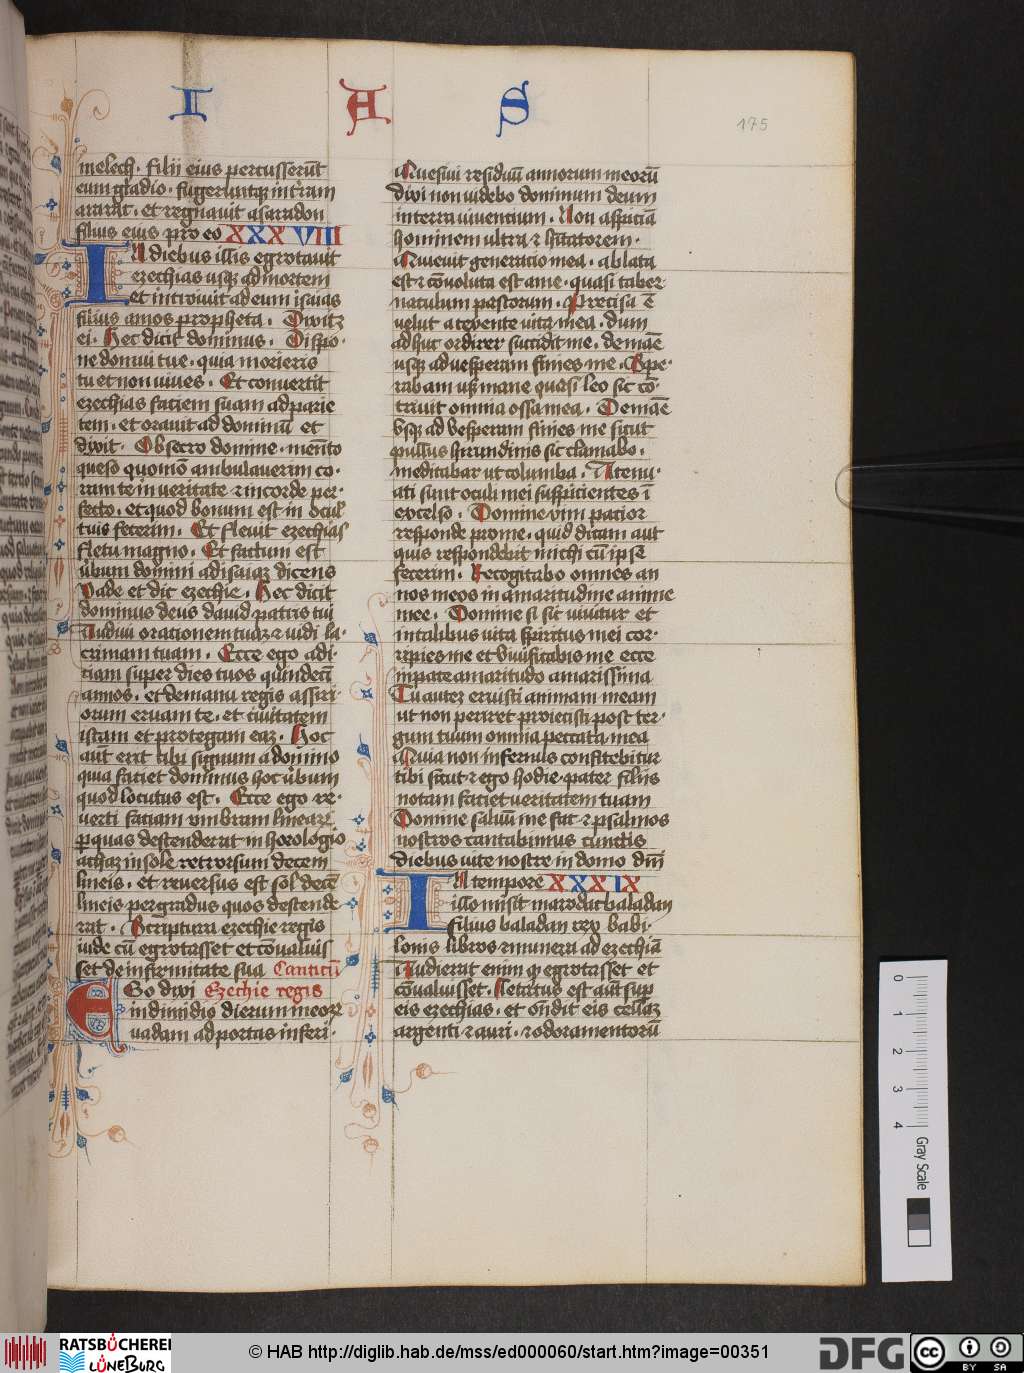 I A S
175
melech . filii eius percusserūt
eum gladio . fugeruntqz in terram
ararat . et regnauit asaradon
filius eius pro eo XXXVIII
In diebus illis egrotauit
ezechias usqz ad mortem
et introiuit ad eum isaias
filius amos propheta . Dixitqz
ei . Hec dicit dominus . Dispo-
ne domui tue . quia morieris
tu et non uiues . Et conuertit
ezechias faciem suam ad parie
tem . et orauit ad dominū et
dixit . Obsecro domine . memēto
queso quomō ambulauerim co-
ram te in veritate et in corde per-
fecto . et quod bonum est in ocul'
tuis fecerim . Et fleuit ezechias
fletu magno . Et factum est
ūbum domini ad isaiaz dicens
Vade et dic ezechie . Hec dicit
dominus deus dauid patris tui
Audiui orationem tuaz et uidi la-
crimam tuam . Ecce ego adi-
ciam super dies tuos quindecī
annos . et de manu regis assiri-
orum eruam te . et ciuitatem
istam et protegam eaz . Hoc
aūt erit tibi signum a domino
quia faciet dominus hoc ūbum
quod locutus est . Ecce ego re-
uerti faciam vmbram lineaꝝ
per quas descenderat in horologio
achaz in sole retrorsum decem
lineis . et reuersus est sol decē
lineis per gradus quos descende
rat . Scriptura ezechie regis
iude cū egrotasset et cōualuis
set de infirmitate sua Canticū
Ego dixi Ezechie regis
in dimidio dierum meoꝝ
uadam ad portas inferi .
Quesiui residuū annorum meorū
dixi non uidebo dominum deum
in terra uiuentium . Non aspiciā
hominem ultra et hītatorem .
Quieuit generatio mea . ablata
est et cōuoluta est a me . quasi taber-
naculum pastorum . Precisa ē
velut a texente vita mea . dum
adhuc ordirer succidit me . de manē
usqz ad vesperam finies me . Spe-
rabam usqz mane quasi leo sic cō-
triuit omnia ossa mea . De manē
vsqz ad vesperam finies me sicut
pullus hirundinis sic clamabo .
meditabor ut columba . Attenu-
ati sunt oculi mei suspicientes ī
excelso . Domine vim patior
responde pro me . quid dicam aut
quis respondebit michi cū ipse
fecerim . Recogitabo omnes an
nos meos in amaritudine anime
mee . Domine si sic viuitur et
in talibus vita spiritus mei cor-
ripies me et viuificabis me ecce
in pace amaritudo amarissima
Tu autez eruisti animam meam
ut non periret proiecisti post ter-
gum tuum omnia peccata mea
Quia non infernus confitebitur
tibi sicut et ego hodie . pater filiis
notam faciet veritatem tuam
Domine saluū me fac et psalmos
nostros cantabimus cunctis
diebus uite nostre in domo dn̄i
In tempore XXXIX
illo misit marodac baladan
filius baladan rex babi-
lonis libros et munera ad ezechiā
Audierat enim qz egrotasset et
cōualuisset . Letatus est aūt sup
eis ezechias . et on̄dit eis cellaz
argenti et auri . et odoramentorū
0 1 2 3 4
Gray Scale
RATSBÜCHEREI
LÜNEBURG
© HAB http://diglib.hab.de/mss/ed000060/start.htm?image=00351
DFG
cc BY SA